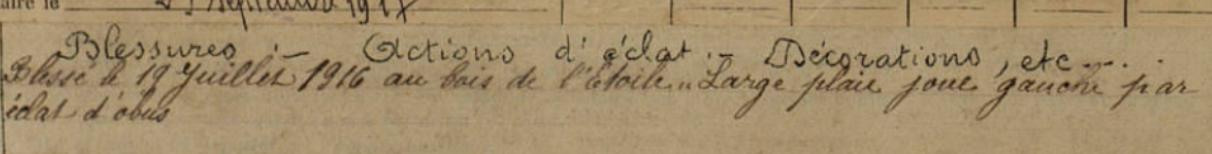 aire le 25 septembre 1917
Blessures :- Actions d'éclat :- Décorations, etc...
Blessé le 19 Juillet 1916 au bois de l'Etoile. Large plaie joue gauche par
éclat d'obus